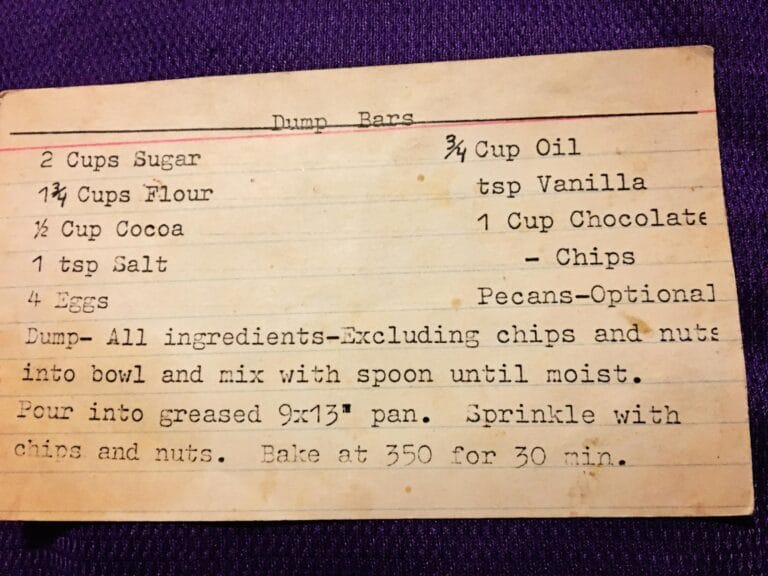 Dump Bars
2 Cups Sugar
1¾ Cups Flour
½ Cup Cocoa
1 tsp Salt
4 Eggs
¾ Cup Oil
tsp Vanilla
1 Cup Chocolate
- Chips
Pecans-Optional
Dump- All ingredients-Excluding chips and nuts
into bowl and mix with spoon until moist.
Pour into greased 9x13" pan. Sprinkle with
chips and nuts. Bake at 350 for 30 min.